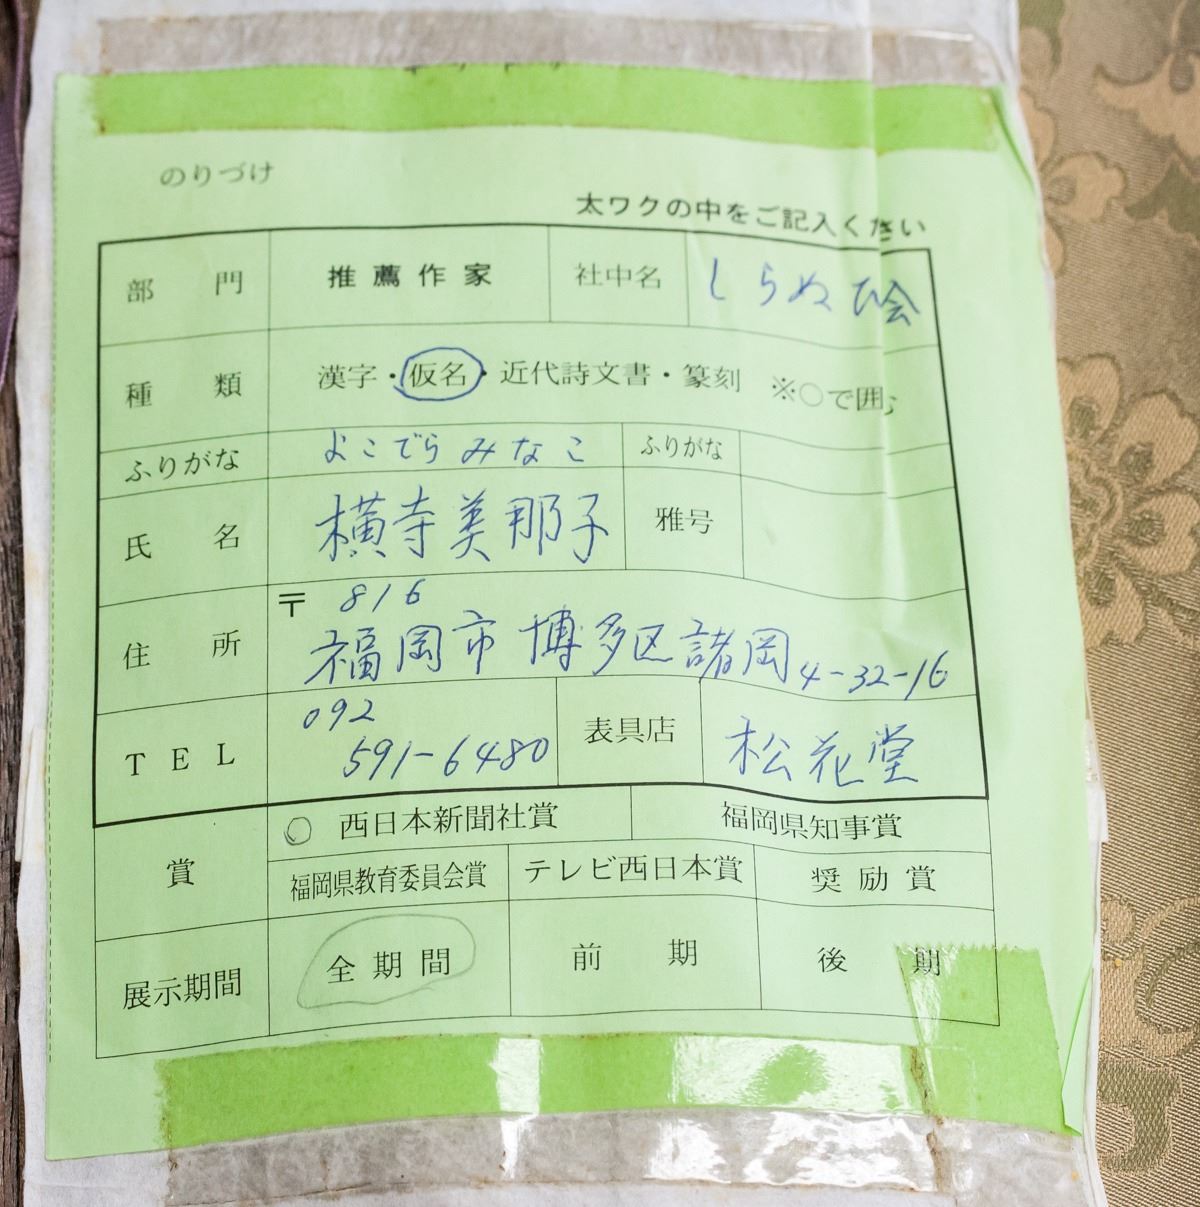 のりづけ
太ワクの中をご記入ください
部門 推薦作家 社中名 しらぬひ会
種類 漢字・仮名・近代詩文書・篆刻 ※○で囲む
ふりがな よこでらみなこ ふりがな
氏名 横寺美那子 雅号
住所 〒 816
福岡市博多区諸岡4-32-16
TEL 092
591-6480 表具店 松花堂
賞 ○ 西日本新聞社賞 福岡県知事賞
福岡県教育委員会賞 テレビ西日本賞 奨励賞
展示期間 全期間 前期 後期